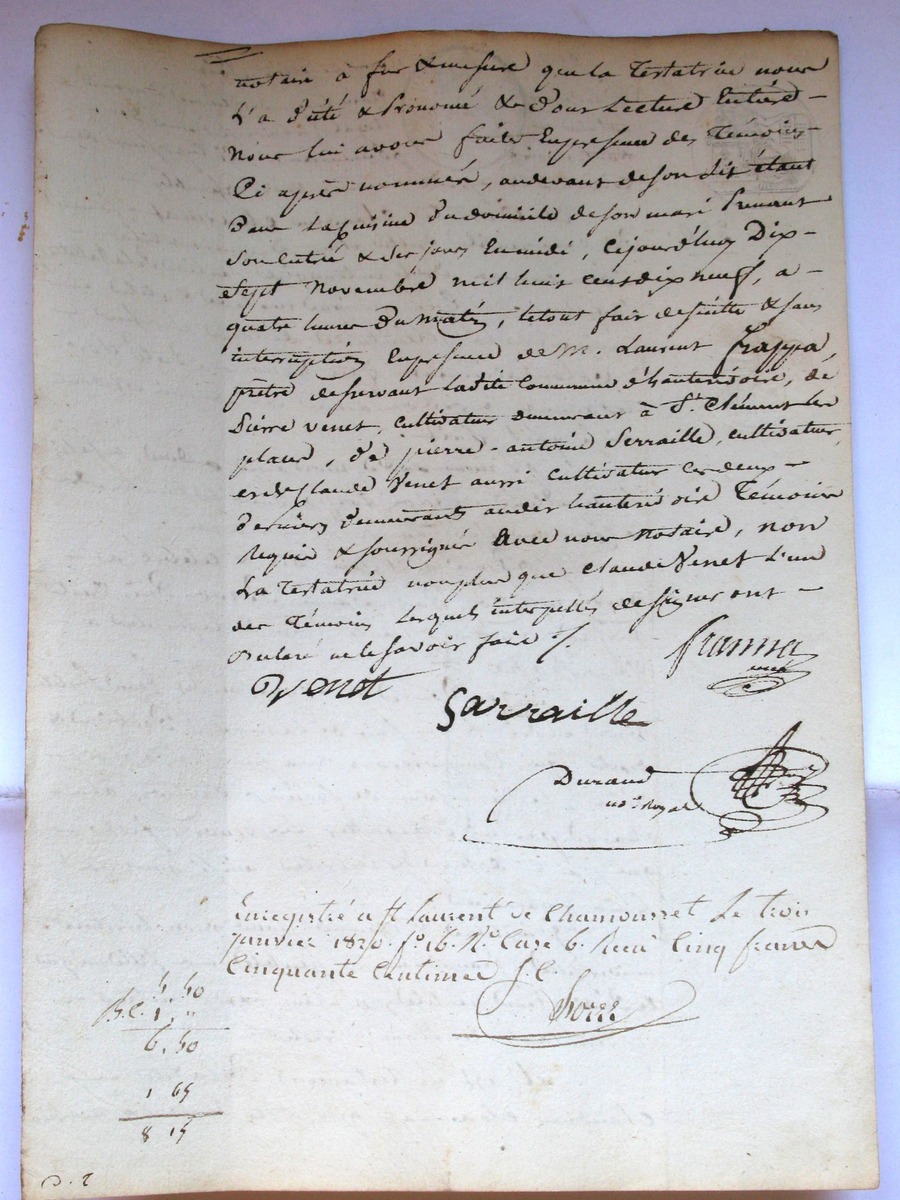 notaire à fur & mesure que la Testatrice nous
L'a dicté & Prononcé & Dont Lecture Entiere
Nous lui avons faite En presence des Témoins
Ci après nommés, au devant de son dit étant
Dans La Cuisine du domicile de son mari Prenant
Son Entrée & Ses jours En midi, Cejourd'huy Dix-
Sept Novembre mil huit cent dix neuf, a
quatre heures Du Matin, le tout fait de suitte & sans
interruption En presence de M. Laurent frappa,
prêtre desservant ladite Commune d'hauterivoire, de
Pierre venet, cultivateur demeurant à St. Clément les
places, de pierre-antoine Serraille, cultivateur,
et de Claude Venet aussi cultivateur ces deux
Derniers Demeurants audit hauterivoire Témoins
Requis & soussignés Avec nous Notaire, non
La Testatrice non plus que Claude Venet L'un
des Témoins Lesquels interpellés de signer ont
Declaré ne le savoir faire ./.
frappa
Venet
Sarraille
Durand
no.re Royal
Enregistré a St Laurent de Chamousset Le trois
janvier 1820. fo. 16. Ro. Case 6. Recu Cinq francs
Cinquante Centimes S.C.
5 50
S.C. 1 . "
6. 50
1 65
8 15